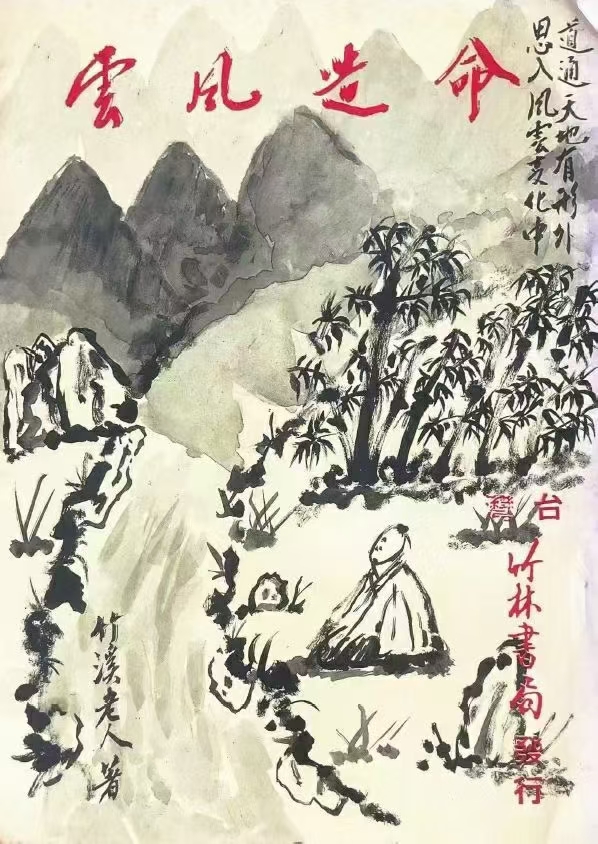 命造風雲
道通天地有形外
思入風雲變化中
台灣
竹林書局發行
竹溪老人著